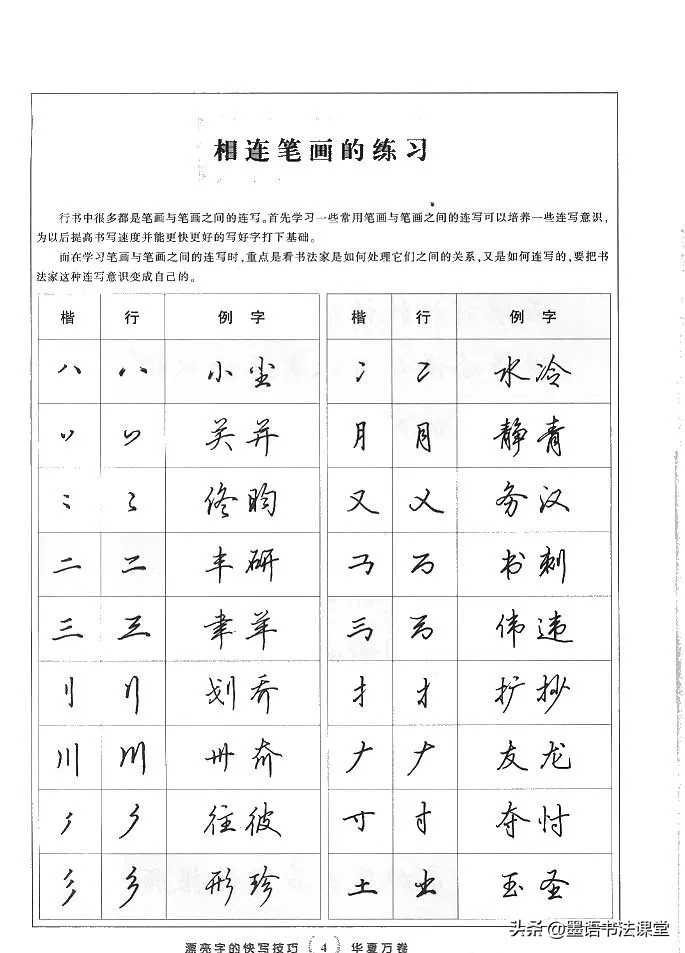 相连笔画的练习
行书中很多都是笔画与笔画之间的连写。首先学习一些常用笔画与笔画之间的连写可以培养一些连写意识，
为以后提高书写速度并能更快更好的写好字打下基础。
而在学习笔画与笔画之间的连写时，重点是看书法家是如何处理它们之间的关系，又是如何连写的，要把书
法家这种连写意识变成自己的。
楷 行 例字 楷 行 例字
八 八 小尘 冫 冫 水冷
丷 丷 关并 月 月 静青
佟昀 又 又 务汉
二 二 丰研 书刺
三 三 伟违
刂 刂 划乔 扌 扌 扩抄
川 川 卅 𠂇 𠂇 友龙
往彼 寸 寸 夺忖
彡 彡 形珍 土 土 玉圣
漂亮字的快写技巧 4 华夏万卷
头条@墨语书法课堂